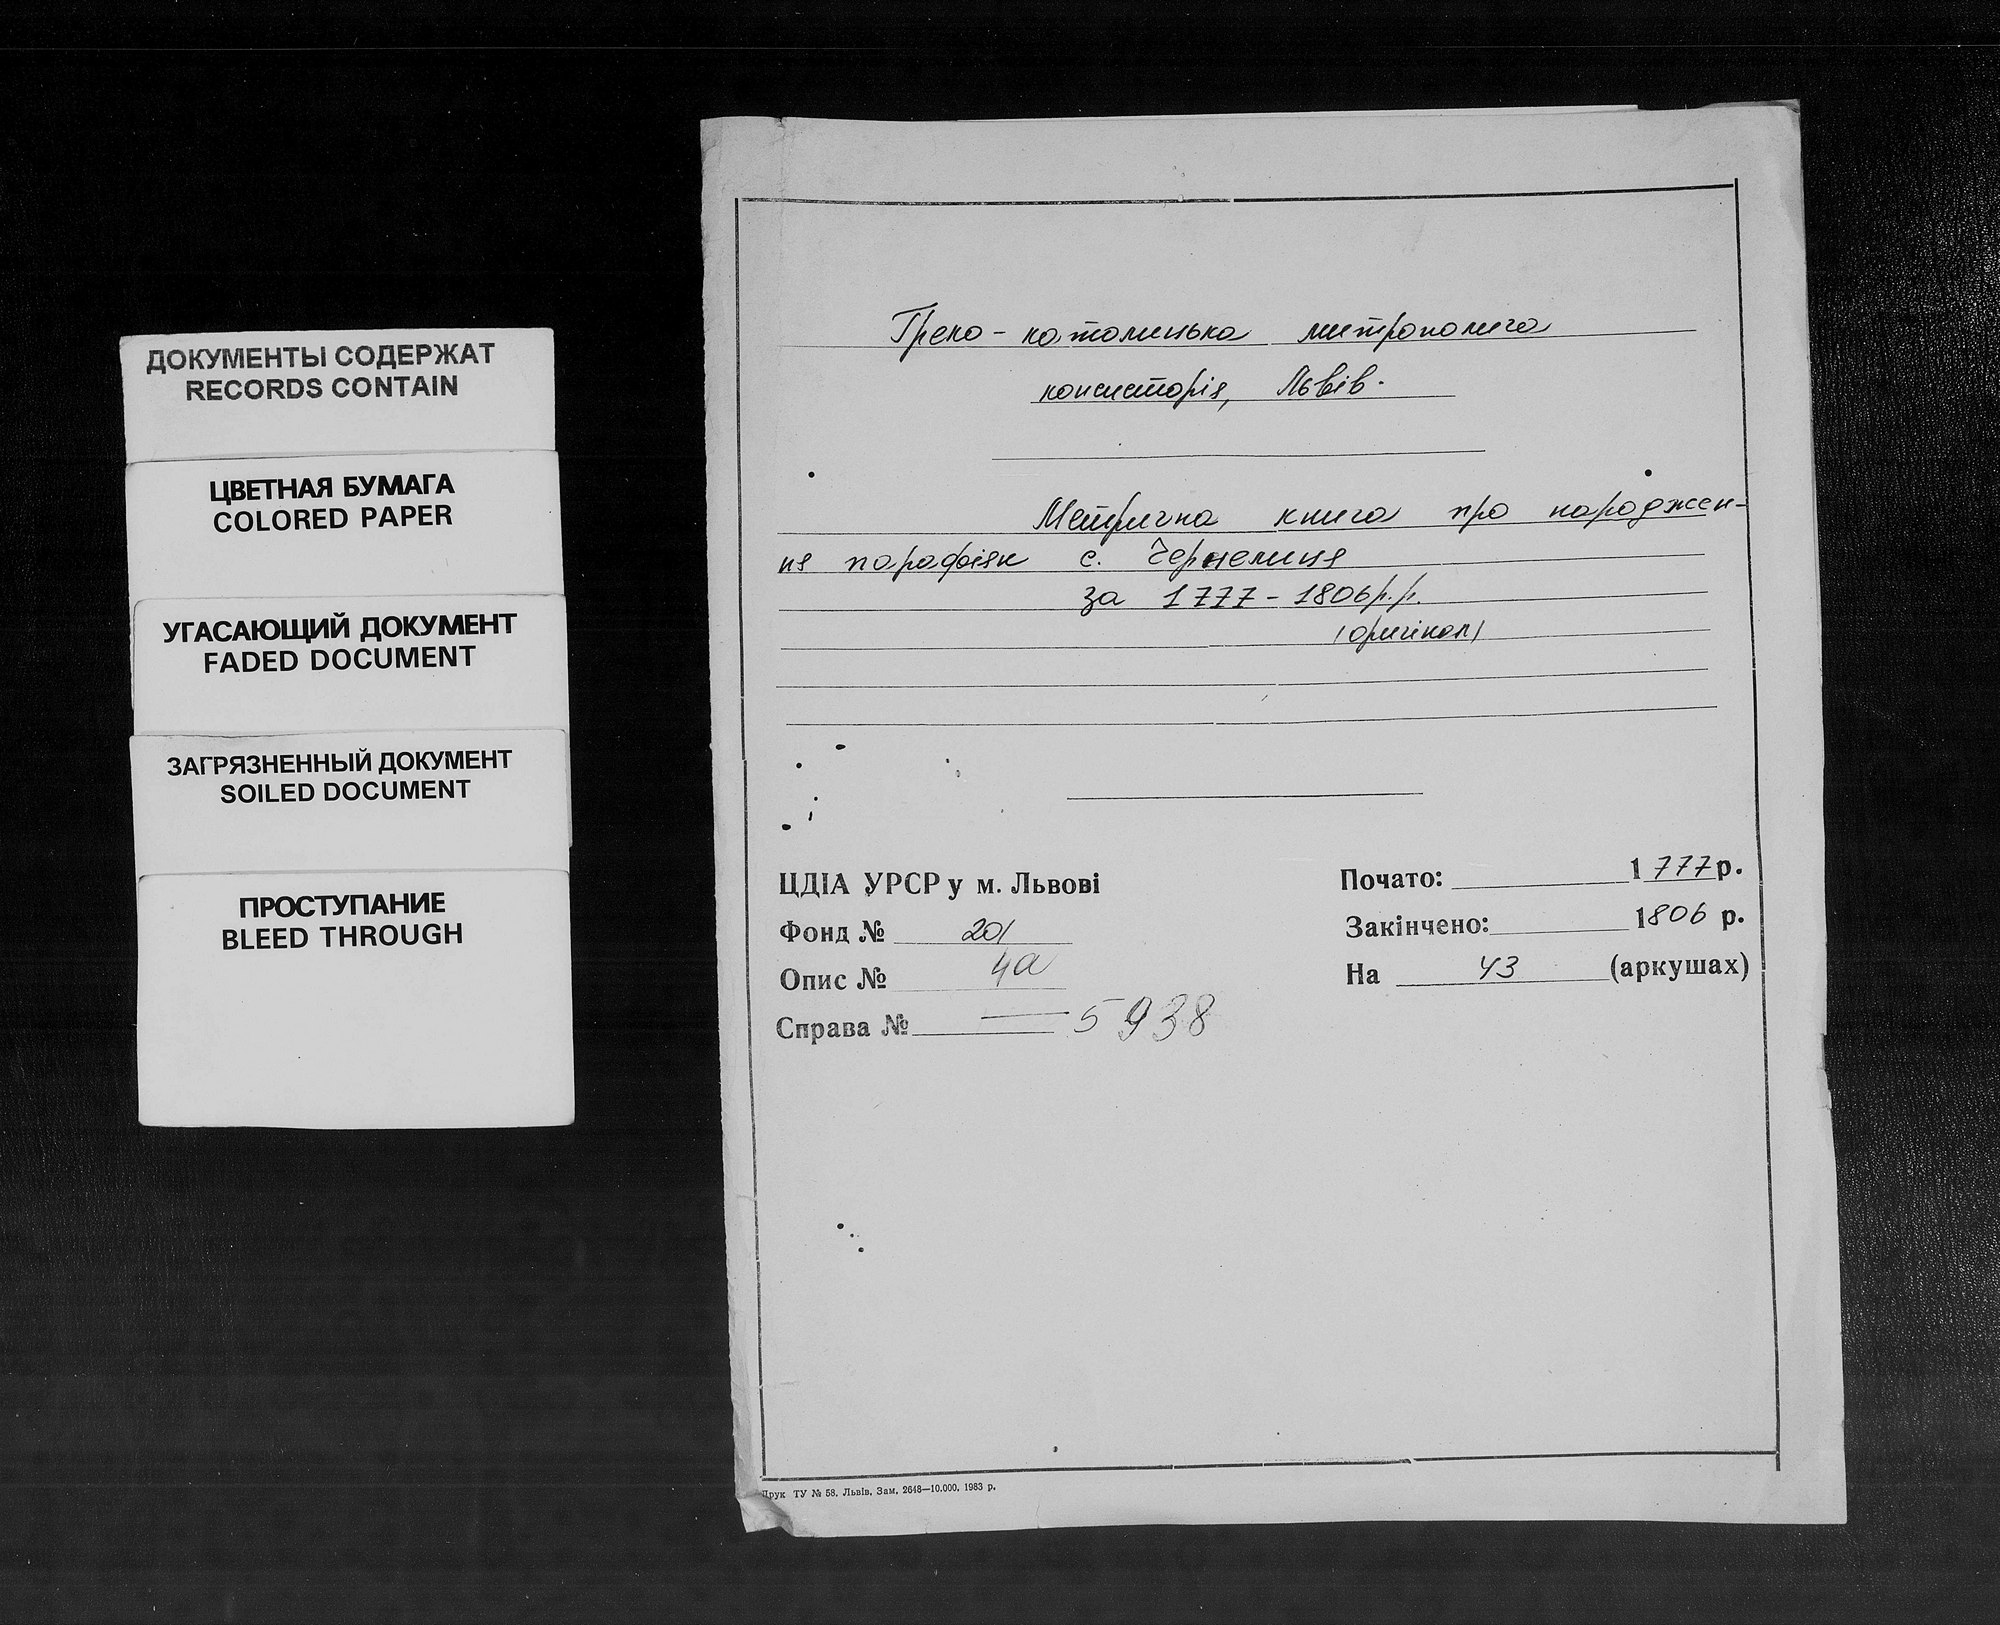 ДОКУМЕНТЫ СОДЕРЖАТ
RECORDS CONTAIN
ЦВЕТНАЯ БУМАГА
COLORED PAPER
УГАСАЮЩИЙ ДОКУМЕНТ
FADED DOCUMENT
ЗАГРЯЗНЕННЫЙ ДОКУМЕНТ
SOILED DOCUMENT
ПРОСТУПАНИЕ
BLEED THROUGH
Греко-католицька митрополича
консисторія, Львів.
Метрична книга про народжен-
ня парафіян с. Чернелиця
за 1777-1806р.р.
/оригінал/
ЦДІА УРСР у м. Львові
Фонд № 201
Опис № 4а
Справа № 5938
Почато: 1777 р.
Закінчено: 1806 р.
На 43 (аркушах)
Друк ТУ № 58. Львів. Зам. 2648—10.000. 1983 р.